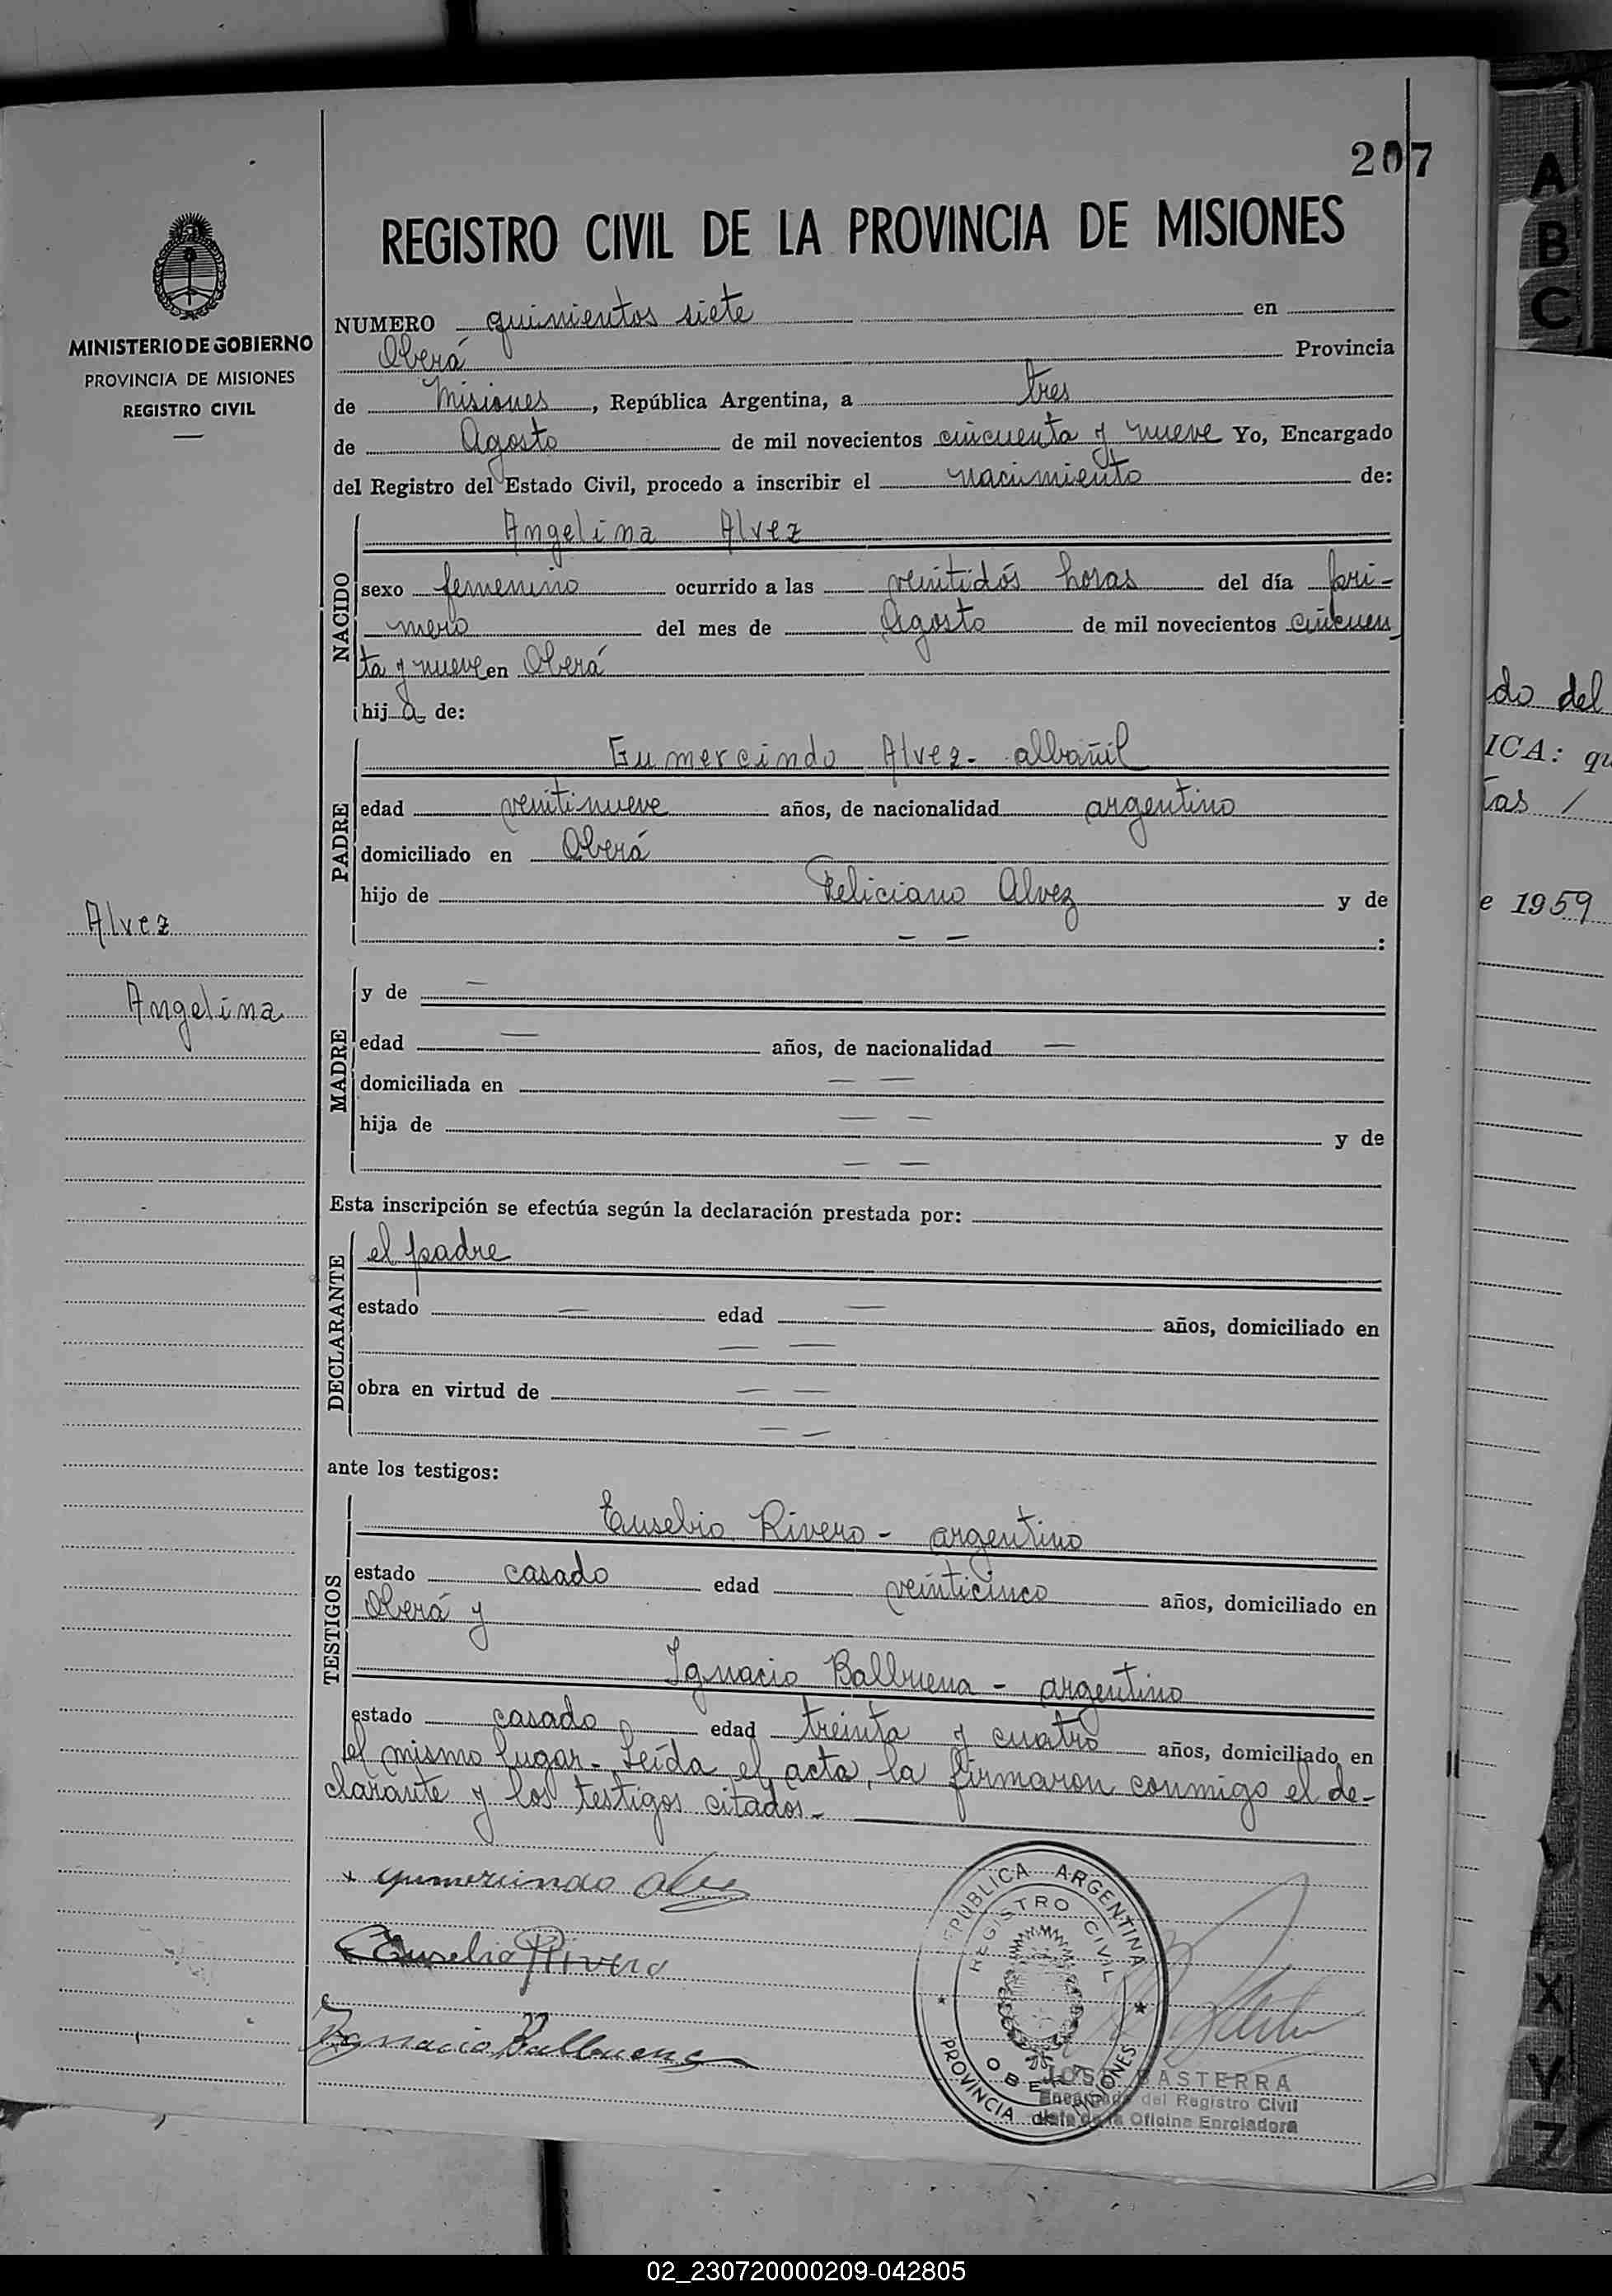 207
REGISTRO CIVIL DE LA PROVINCIA DE MISIONES
MINISTERIO DE GOBIERNO
PROVINCIA DE MISIONES
REGISTRO CIVIL
NUMERO quinientos siete en
Oberá Provincia
de Misiones, República Argentina, a tres
de Agosto de mil novecientos cincuenta y nueve Yo, Encargado
del Registro del Estado Civil, procedo a inscribir el nacimiento de:
NACIDO
Angelina Alvez
sexo femenino ocurrido a las veintidós horas del día pri-
mero del mes de Agosto de mil novecientos cincuen
ta y nueve en Oberá
hija de:
PADRE
Gumercindo Alvez - albañil
edad veintinueve años, de nacionalidad argentino
domiciliado en Oberá
hijo de Feliciano Alvez y de
— — :
Alvez
Angelina
MADRE
y de —
edad — años, de nacionalidad —
domiciliada en — —
hija de — — y de
— —
Esta inscripción se efectúa según la declaración prestada por:
DECLARANTE
el padre
estado — edad — años, domiciliado en
— —
obra en virtud de — —
— —
ante los testigos:
TESTIGOS
Eusebio Rivero - argentino
estado casado edad veinticinco años, domiciliado en
Oberá y
Ignacio Balbuena - argentino
estado casado edad treinta y cuatro años, domiciliado en
el mismo lugar - Leída el acta, la firmaron conmigo el de-
clarante y los testigos citados -
x gumercindo alvez
Eusebio Rivero
Ignacio Balbuena
REPUBLICA ARGENTINA
REGISTRO CIVIL
OBERA
PROVINCIA de MISIONES
JOSE BASTERRA
Encargado del Registro Civil
Jefe de la Oficina Enroladora
do del
ICA: qu
tas /
e 1959
A
B
C
X
Y
Z
02_230720000209-042805